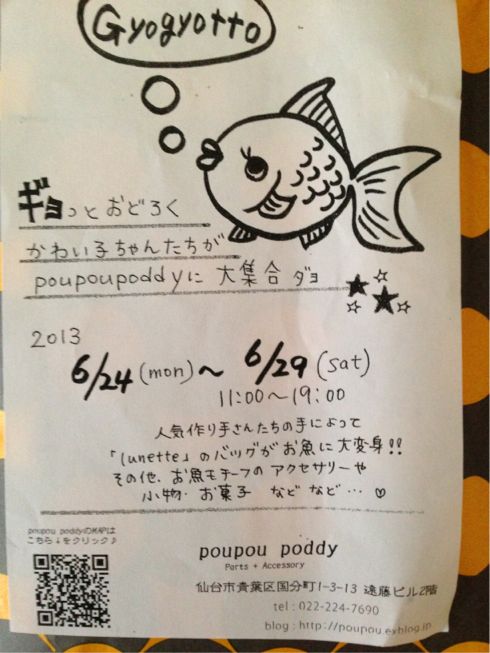 Gyogyotto
ギョっとおどろく
かわい子ちゃんたちが
poupoupoddyに 大集合 ダョ
2013
6/24(mon)〜 6/29(sat)
11:00〜19:00
人気作り手さんたちの手によって
「lunette」のバッグがお魚に大変身!!
その他、お魚モチーフのアクセサリーや
小物・お菓子 など など…♡
poupou poddyのMAPは
こちら↓をクリック♪
poupou poddy
Parts + Accessory
仙台市青葉区国分町1-3-13 遠藤ビル2階
tel : 022-224-7690
blog : http://poupou.exblog.jp